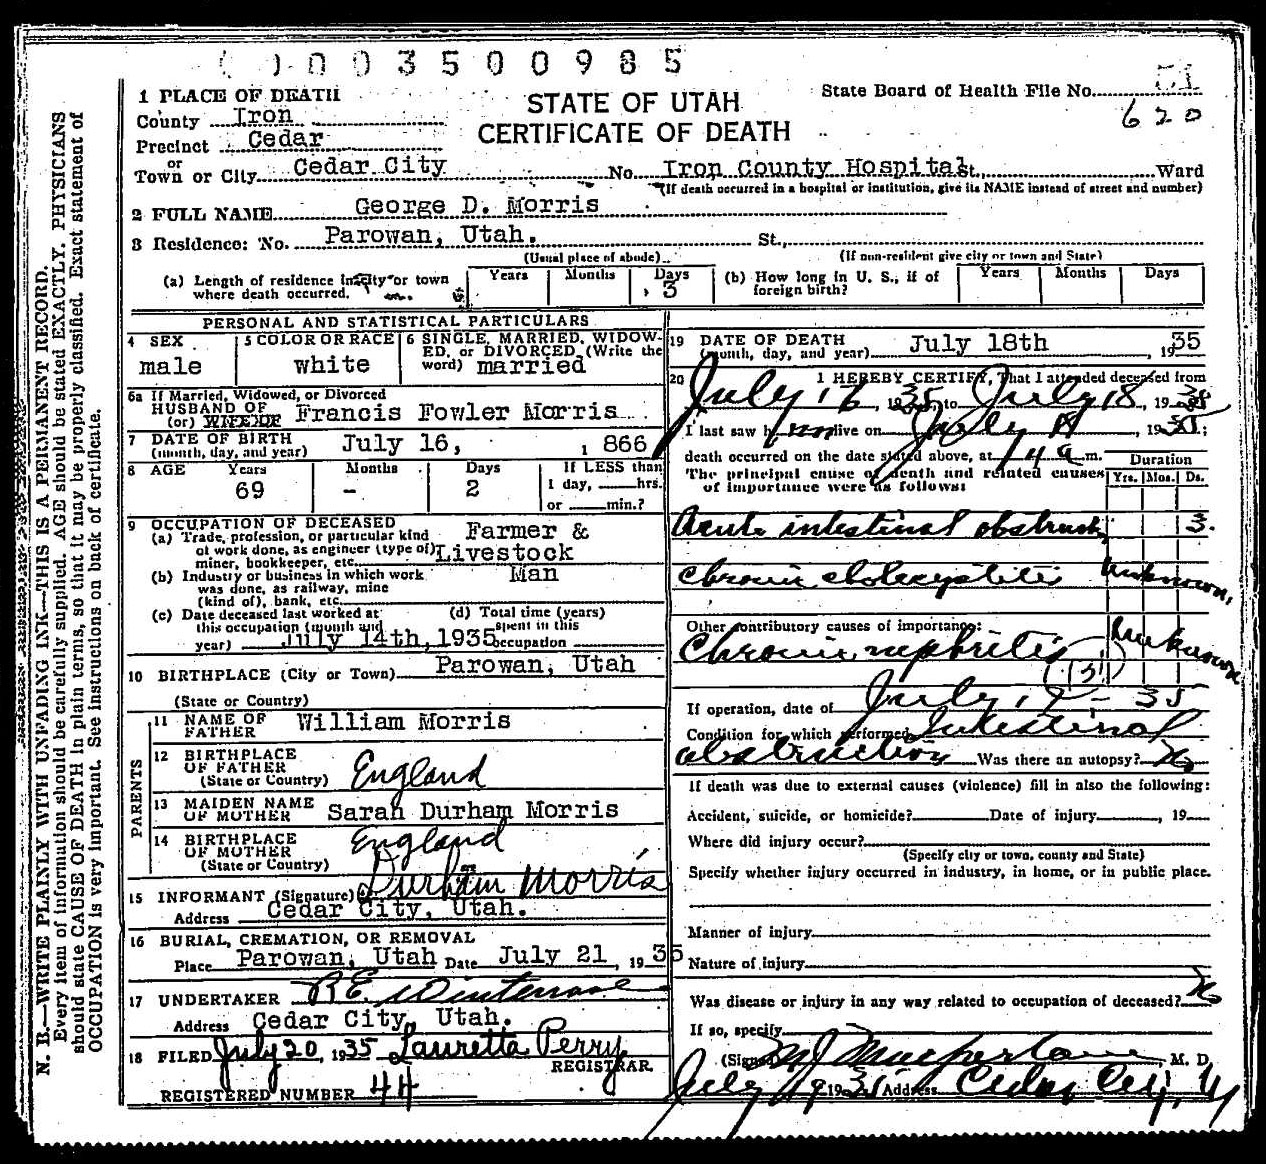 0003500985
1 PLACE OF DEATH
STATE OF UTAH
CERTIFICATE OF DEATH
State Board of Health File No. 51
620
County Iron
Precinct Cedar
or
Town or City Cedar City No. Iron County Hospital St., Ward
(If death occurred in a hospital or institution, give its NAME instead of street and number)
2 FULL NAME George D. Morris
3 Residence: No. Parowan, Utah. St.,
(Usual place of abode) (If non-resident give city or town and State)
(a) Length of residence in city or town where death occurred. Years Months Days 3
(b) How long in U. S., if of foreign birth? Years Months Days
PERSONAL AND STATISTICAL PARTICULARS
4 SEX male
5 COLOR OR RACE white
6 SINGLE, MARRIED, WIDOWED, or DIVORCED (Write the word) married
6a If Married, Widowed, or Divorced
HUSBAND OF (or) WIFE OF Francis Fowler Morris
7 DATE OF BIRTH (month, day, and year) July 16, , 866
8 AGE Years 69 Months - Days 2
If LESS than 1 day, hrs. or min.?
9 OCCUPATION OF DECEASED
(a) Trade, profession, or particular kind of work done, as engineer (type of) miner, bookkeeper, etc. Farmer & Livestock Man
(b) Industry or business in which work was done, as railway, mine (kind of), bank, etc.
(c) Date deceased last worked at this occupation (month and year) July 14th, 1935
(d) Total time (years) spent in this occupation
10 BIRTHPLACE (City or Town) Parowan, Utah
(State or Country)
PARENTS
11 NAME OF FATHER William Morris
12 BIRTHPLACE OF FATHER (State or Country) England
13 MAIDEN NAME OF MOTHER Sarah Durham Morris
14 BIRTHPLACE OF MOTHER (State or Country) England
15 INFORMANT (Signature) Durham Morris
Address Cedar City, Utah.
16 BURIAL, CREMATION, OR REMOVAL
Place Parowan, Utah Date July 21, 1935
17 UNDERTAKER
Address Cedar City, Utah.
18 FILED July 20, 1935 Lauretta Perry
REGISTRAR.
REGISTERED NUMBER 44
19 DATE OF DEATH (month, day, and year) July 18th , 1935
20 I HEREBY CERTIFY, That I attended deceased from
July 16, 1935, to July 18, 1935
I last saw him alive on July 18, 1935;
death occurred on the date stated above, at m.
The principal cause of death and related causes of importance were as follows:
Duration
Yrs. Mos. Ds.
Acute intestinal obstruct 3.
Chronic cholecystitis Unknown.
Other contributory causes of importance:
Chronic nephritis Unknown
If operation, date of July, 35
Condition for which performed Intestinal obstruction Was there an autopsy? No
If death was due to external causes (violence) fill in also the following:
Accident, suicide, or homicide? Date of injury , 19
Where did injury occur?
(Specify city or town, county and State)
Specify whether injury occurred in industry, in home, or in public place.
Manner of injury
Nature of injury
Was disease or injury in any way related to occupation of deceased? No
If so, specify
(Signed) M J Macfarlane, M. D.
July 19 1935 Address Cedar City, U
N. B.—WRITE PLAINLY WITH UNFADING INK—THIS IS A PERMANENT RECORD.
Every item of information should be carefully supplied. AGE should be stated EXACTLY. PHYSICIANS
should state CAUSE OF DEATH in plain terms, so that it may be properly classified. Exact statement of
OCCUPATION is very important. See instructions on back of certificate.